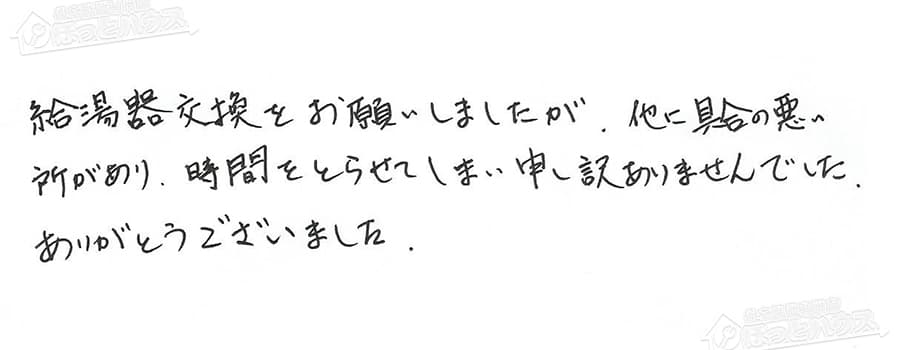 ほっとハウス
給湯器交換をお願いしましたが、他に具合の悪い
所があり、時間をとらせてしまい申し訳ありませんでした。
ありがとうございました。
ほっとハウス